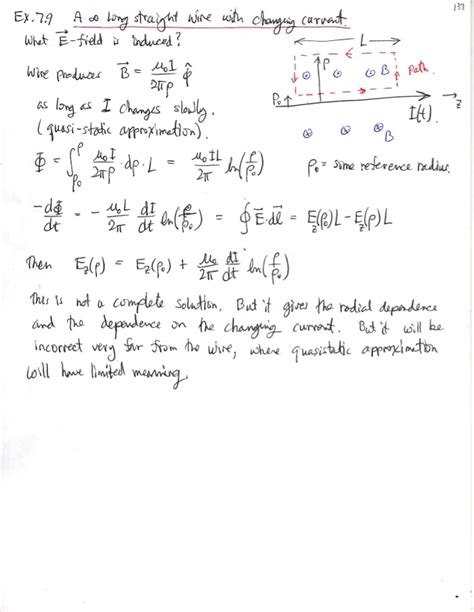 137
Ex. 7.9 A ∞ long straight wire with changing current.
What E⃗-field is induced?
Wire produces B⃗ = μ₀I/2πρ φ̂
as long as I changes slowly.
(quasi-static approximation).
L
ρ
B
Path.
ρ₀
I(t).
z
B
Φ = ∫_ρ₀^ρ μ₀I/2πρ · dρ · L = μ₀IL/2π ln(ρ/ρ₀)
ρ₀ = some reference radius.
-dΦ/dt = - μ₀L/2π dI/dt ln(ρ/ρ₀) = ∮ E⃗·dl⃗ = E_z(ρ₀)L - E_z(ρ)L
Then E_z(ρ) = E_z(ρ₀) + μ₀/2π dI/dt ln(ρ/ρ₀)
This is not a complete solution. But it gives the radial dependence
and the dependence on the changing current. But it will be
incorrect very far from the wire, where quasistatic approximation
will have limited meaning.